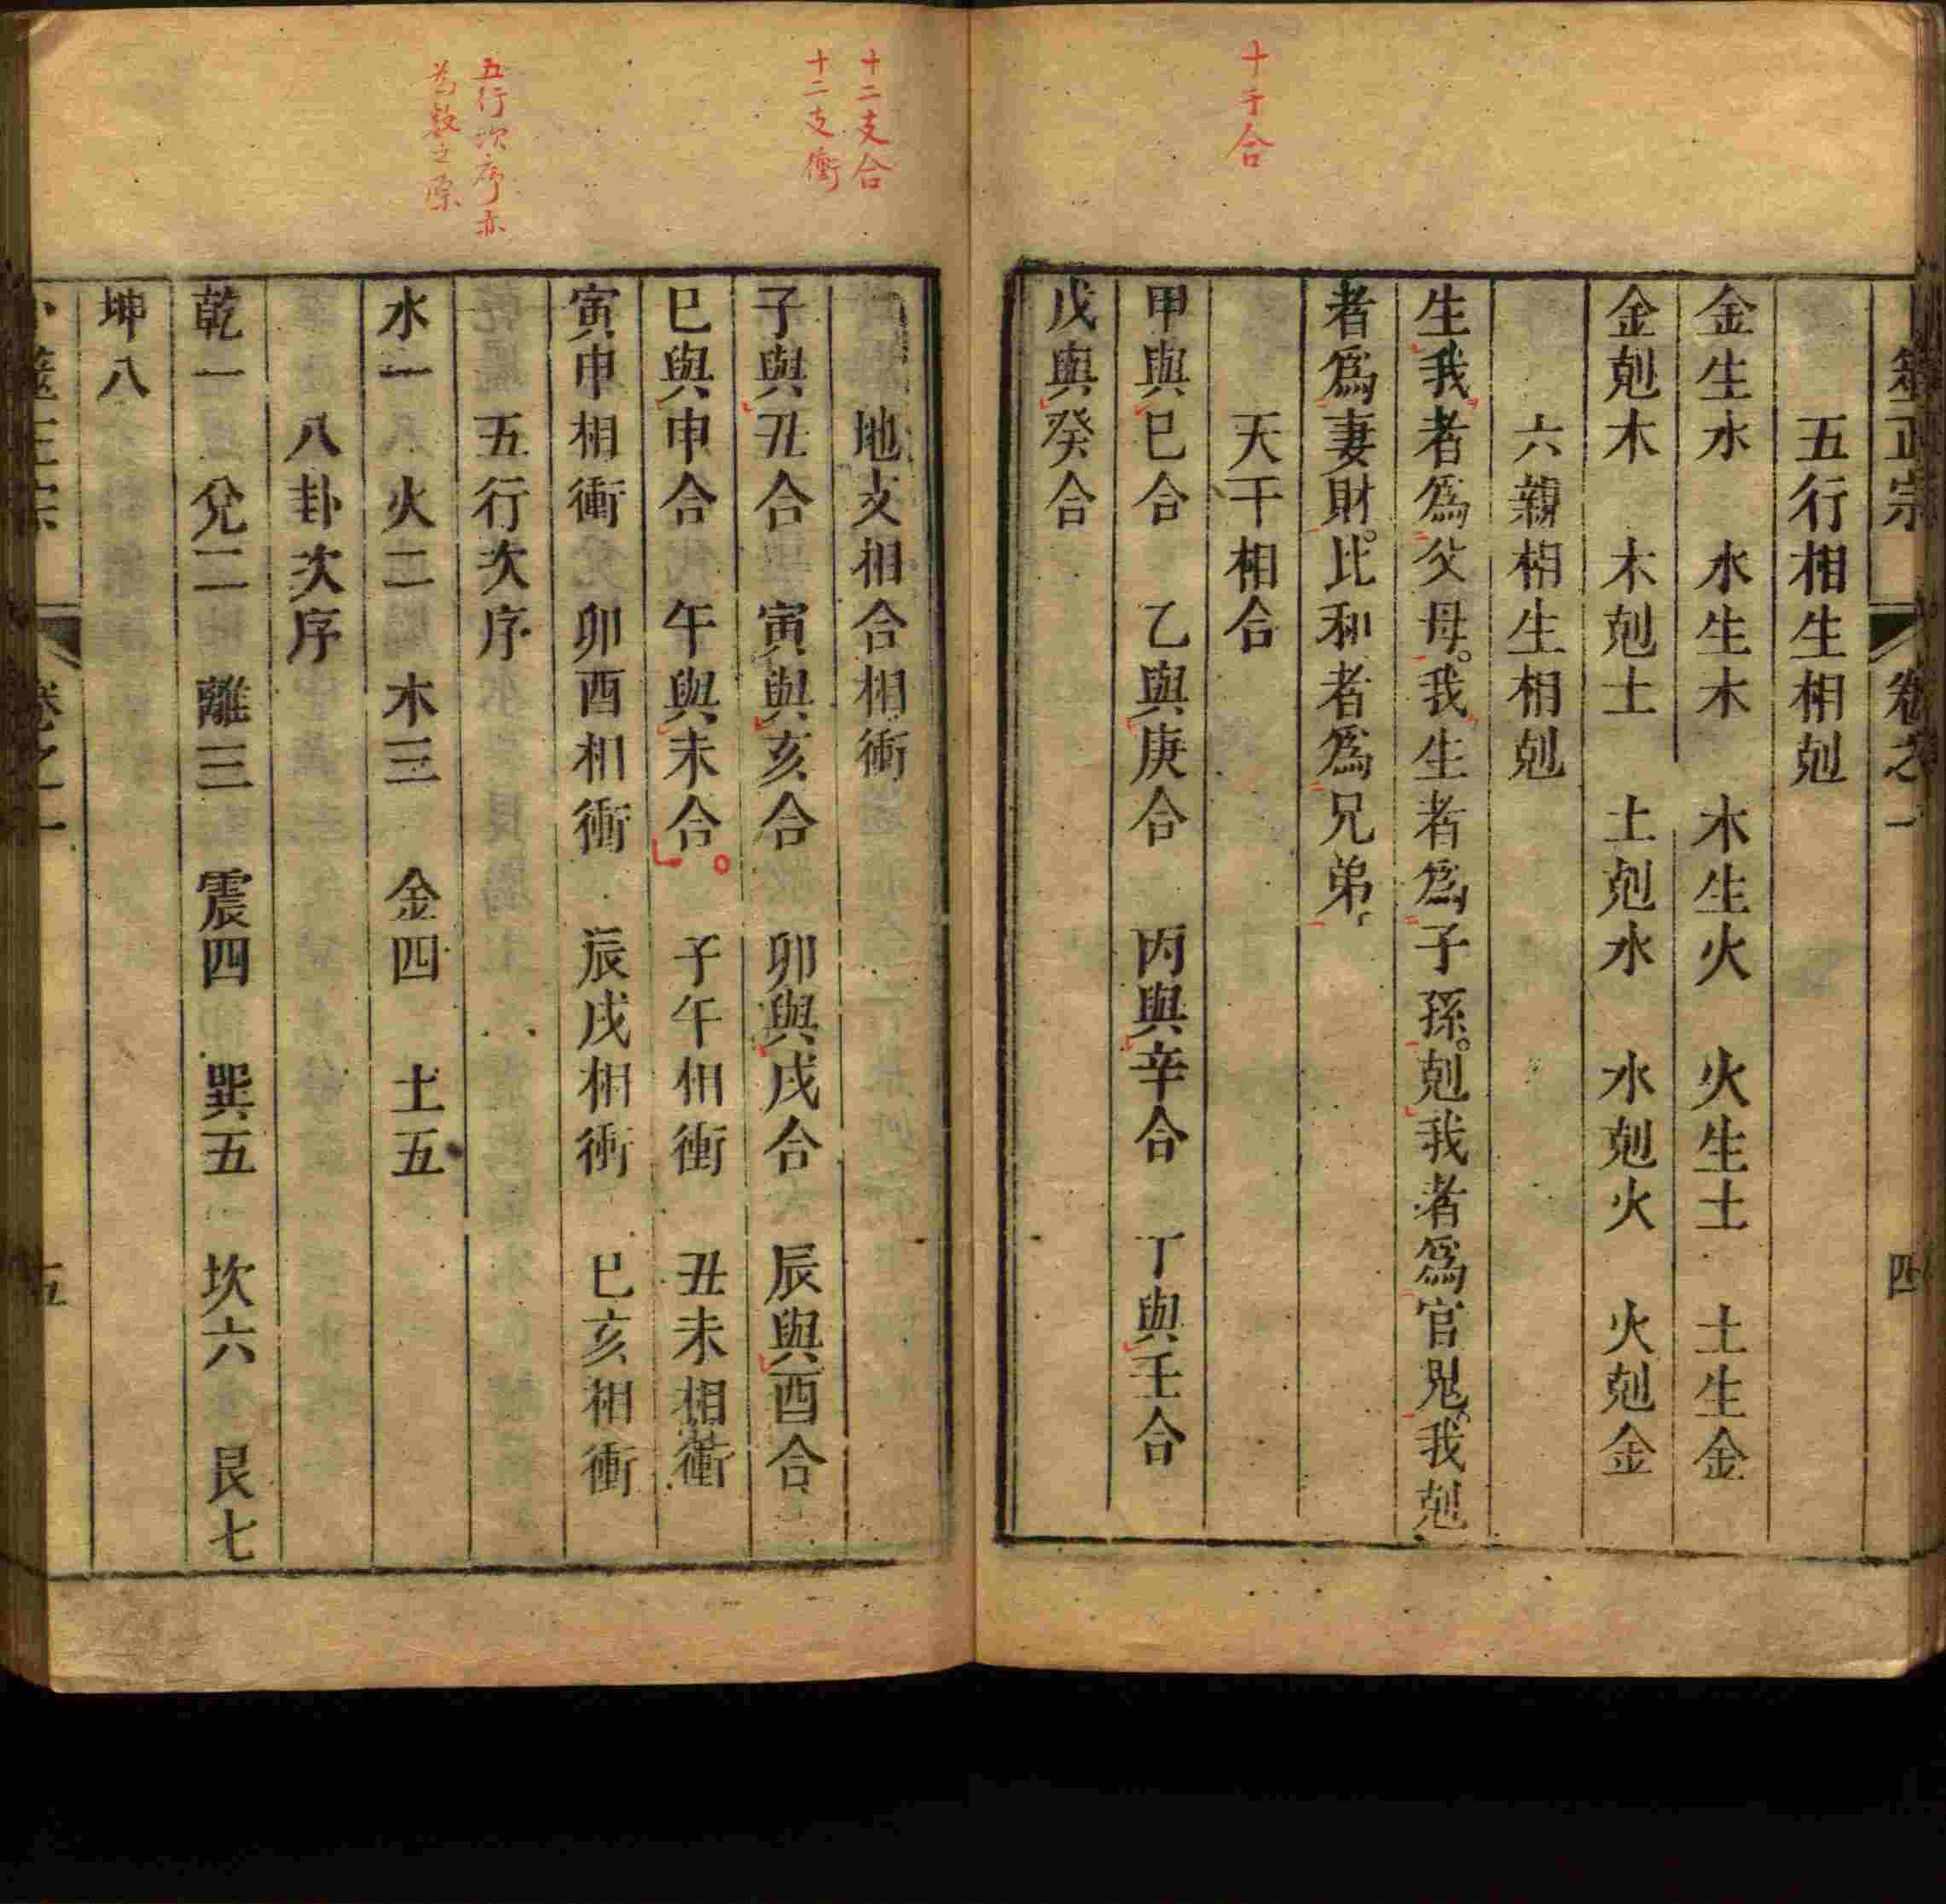 筮正宗 卷之一 四
五行相生相剋
金生水 水生木 木生火 火生土 土生金
金剋木 木剋土 土剋水 水剋火 火剋金
六親相生相剋
生我者爲父母。我生者爲子孫。剋我者爲官鬼。我剋
者爲妻財。比和者爲兄弟
十干合
天干相合
甲與己合 乙與庚合 丙與辛合 丁與壬合
戊與癸合
十二支合
十二支衝
地支相合相衝
子與丑合 寅與亥合 卯與戌合 辰與酉合
巳與申合 午與未合。 子午相衝 丑未相衝
寅申相衝 卯酉相衝 辰戌相衝 巳亥相衝
五行次序亦
為數之原
五行次序
水一 火二 木三 金四 土五
八卦次序
乾一 兌二 離三 震四 巽五 坎六 艮七
坤八
卜筮正宗 卷之一 五